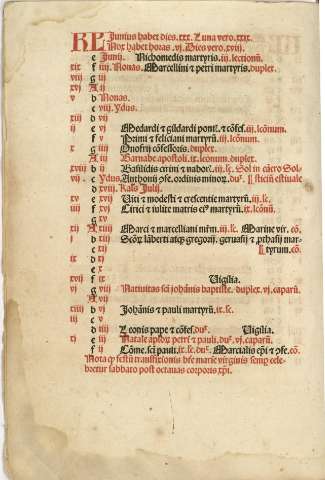 KL Junius habet dies .xxx. Luna vero .xxix.
Nox habet horas .vj. Dies vero .xviij.
e Junij. Nichomedis martyris .iij. lectionū.
xix f iiij. Nonas. Marcellini & petri martyris. duplex.
viij g iij
xvj A ij
v b Nonas.
c viij. Ydus.
xiij d vij
ij e vj Medardi & gildardi cōfes. iij. lec̄onum.
f v Primi & feliciani martyrū. iij. lec̄onum.
x g iiij Onofrij cōfessoris. duplex.
A iij Barnabe apostoli. ix. lec̄onum. duplex.
xviij b ij Basilidis cirini & nabor̄. iij. le. Sol in cācro Sol
vij c Ydus. Anthonij cf̄e. ordinis minor̄. du⁰. sticiū estiuale
d xviij. Kal̄s Julij.
xv e xvij Viti & modesti & crescentie martyrū. iij. le.
iiij f xvj Cirici & iulite matris ei⁹ martyrū. ix. lec̄onū.
g xv
xij A xiiij Marci & marcelliani mr̄m. iij. le. Marine vir. cō.
j b xiij Scōr̄ lāberti atq̄ gregorij. geruasij & ꝓthasij mar-
c xij tyrum. cō.
ix d xj
e x
xvij f ix Vigilia.
vj g viij Natiuitas sc̄i johānis baptiste. duplex. vj. caparū.
A vij
xiiij b vj Johānis & pauli martyrū. ix. le.
iij c v
d iiij Leonis pape & cōfes. du⁰. Vigilia.
xj e iij Natale aplor̄ petri & pauli. du⁰. vj. caparū.
f ij Cōme. sc̄i pauli. ix. le. du⁰. Marcialis ep̄i & cf̄e. cō.
Nota q̄ festū transfixionis bt̄e marie virginis semp̄ cele-
bretur sabbato post octauas corporis xp̄i.